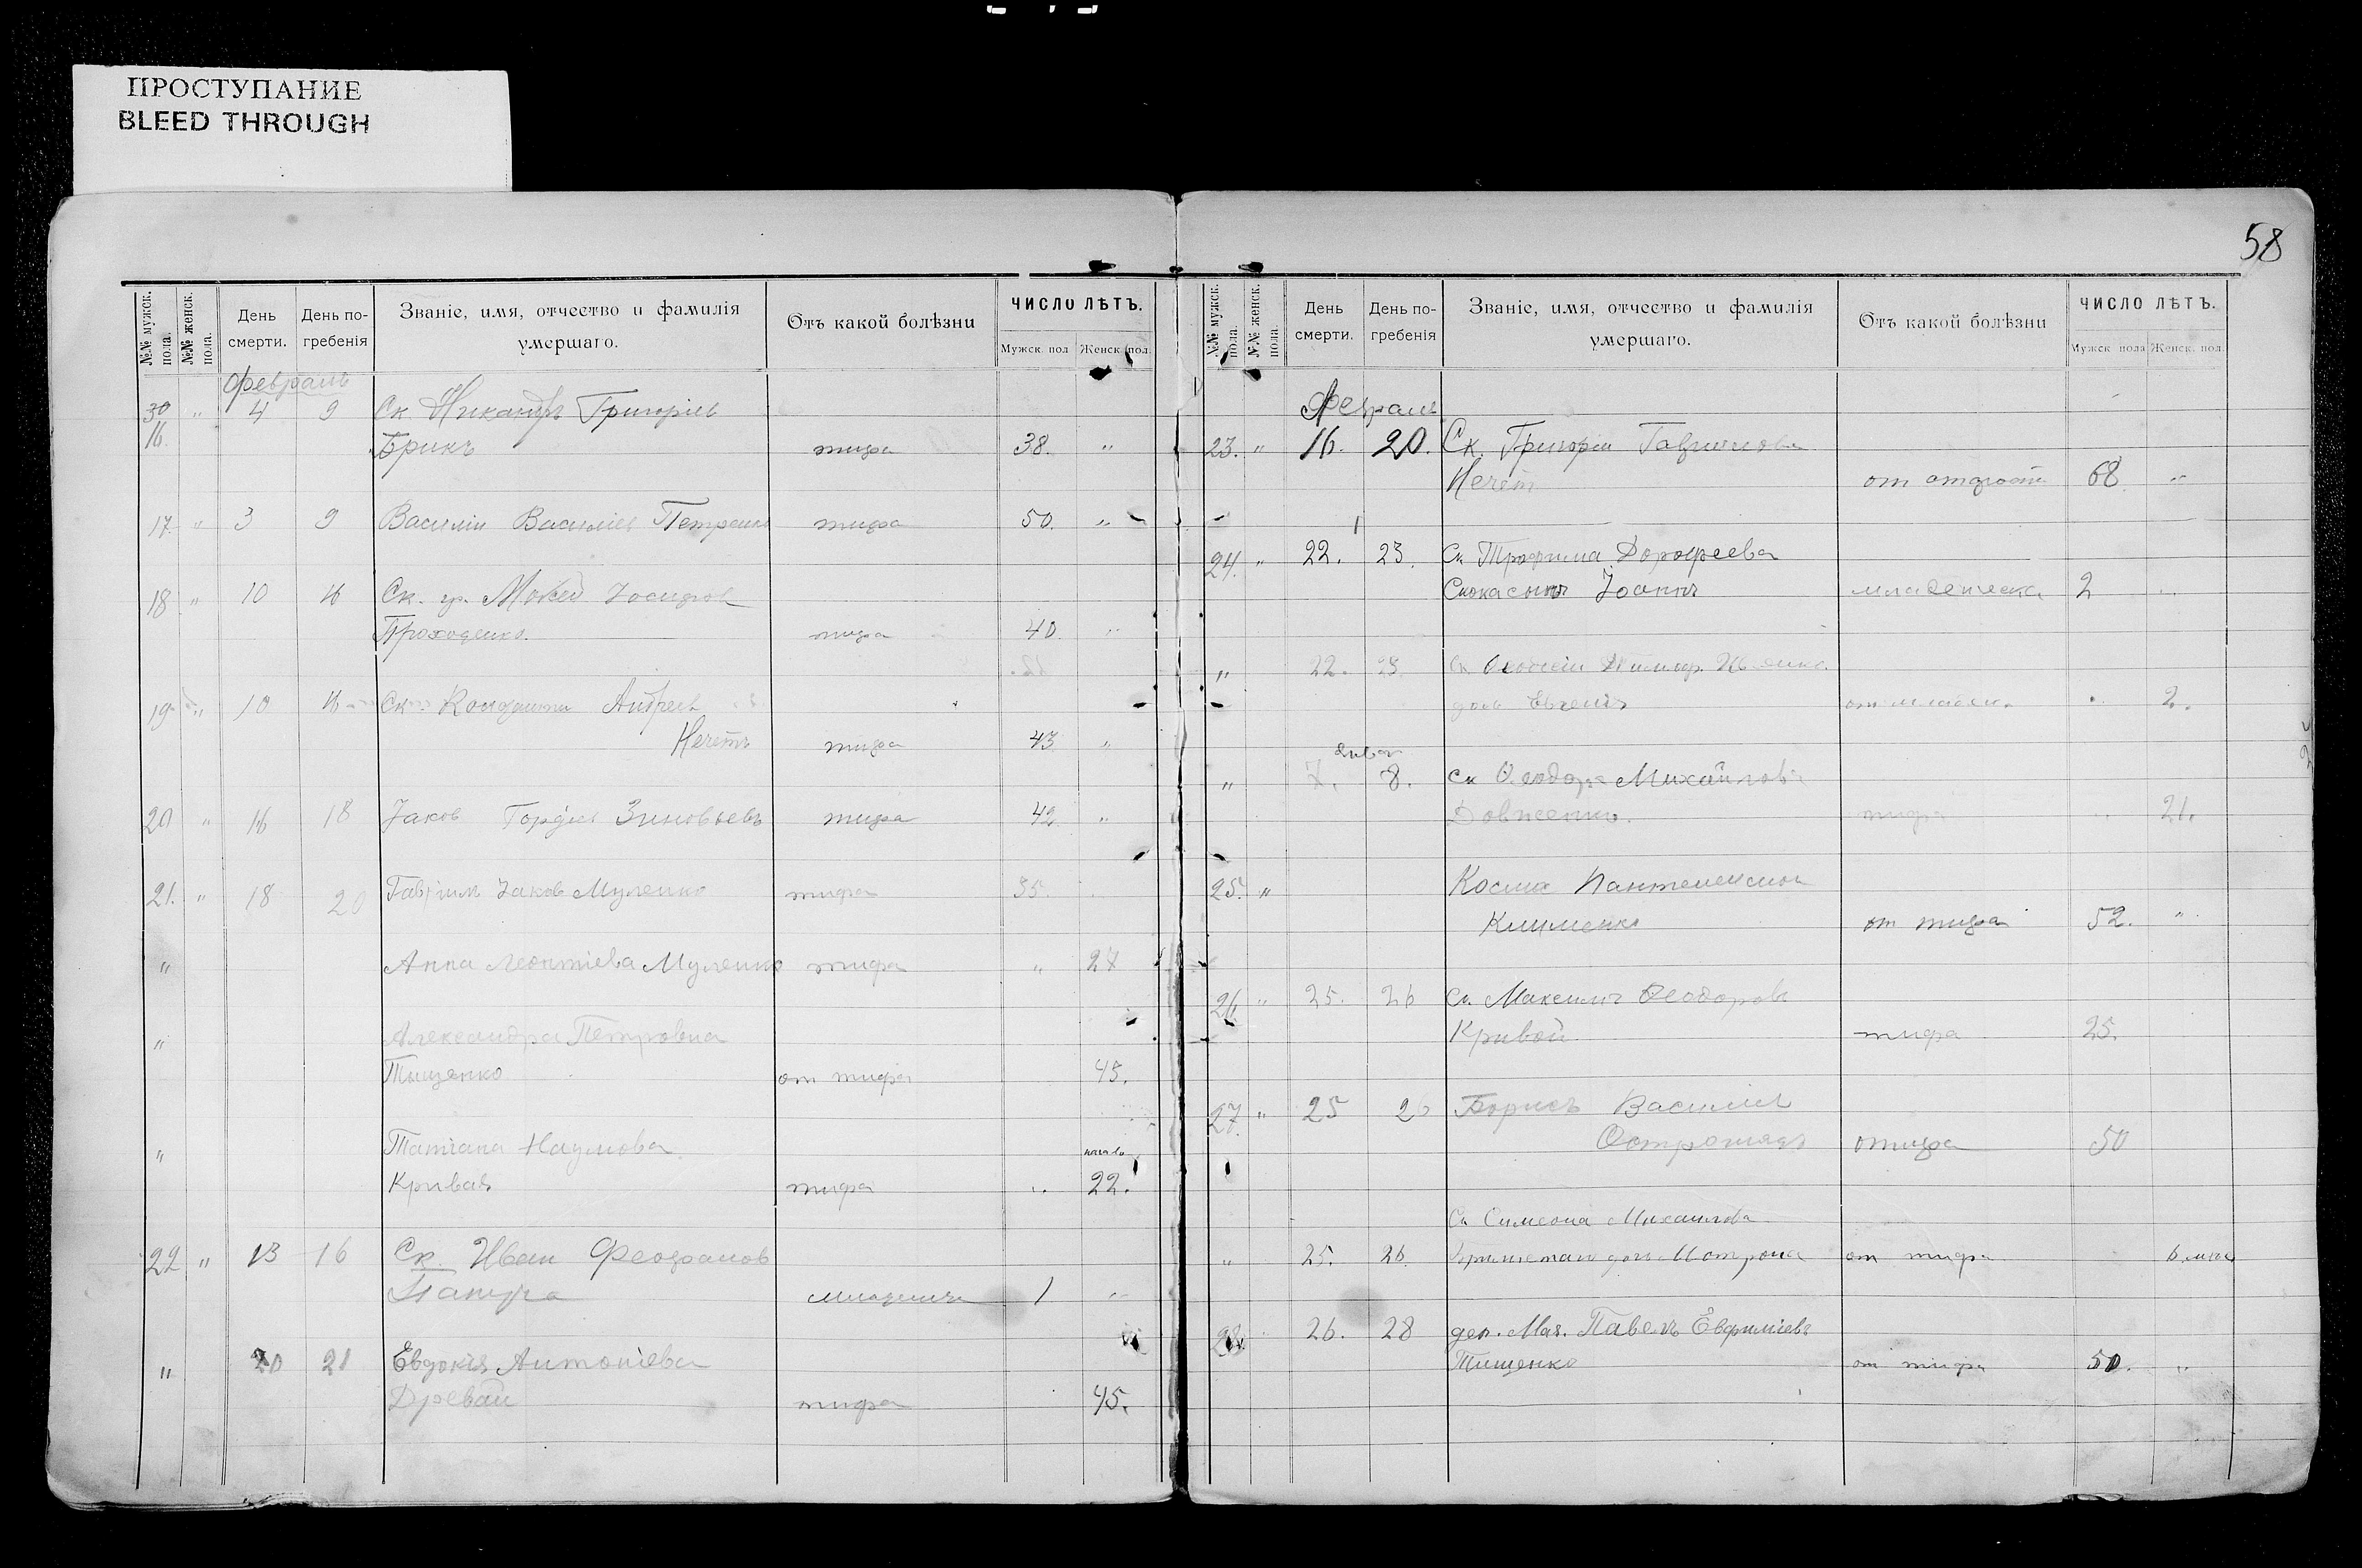 ПРОСТУПАНИЕ
BLEED THROUGH
58
№№ мужск. пола.
№№ женск. пола.
День смерти.
День погребенія
Званіе, имя, отчество и фамилія умершаго.
Отъ какой болѣзни
ЧИСЛО ЛѢТЪ.
Мужск. пол
Женск. пол.
Февраль
30 " 4 9 Ск Никандръ Григоріев
16. Брикъ тифа 38. "
17. " 3 9 Василій Василіев Петренко тифа 50. "
18 " 10 16 Ск. Мокей Іосифов
тифа 40 "
19 " 10 16 Ск. Андреев
Нечетъ тифа 43 "
20 " 16 18 Іаков Гордіев Зиновьевъ тифа 42 "
21. " 18 20 Гавріилъ Іаков Муленко тифа 35.
" Анна Леонтіева Муленко тифа " 27
" Александра Петровна
Тищенко от тифа 45.
" Татіана Наумова
Кривая тифа " 22.
22 " 13 16 Ск. Иван Феофанов
1 "
" 20 21 Евдокія Антоніева
Древаи тифа 45.
№№ мужск. пола.
№№ женск. пола.
День смерти.
День погребенія
Званіе, имя, отчество и фамилія умершаго.
Отъ какой болѣзни
ЧИСЛО ЛѢТЪ.
Мужск. пола
Женск. пол.
Февраль
23. " 16. 20. Ск. Григорій Гавриилова
Нечет от 68 "
24. " 22. 23. Ск Трофима Дорофеева
сынъ Іоаннъ младенческа 2 "
" 22. 23 Ск
дочь Евгенія от младен. " 2.
Январ
" 7. 8. Ск Ѳеодора Михайлова
Довженко. тифа " 21.
25. " Косма Пантелеимон
Клименко от тифа 52. "
26. " 25. 26 Ск. Максимъ Ѳеодоровъ
Кривой тифа 25.
27. " 25 26 Борисъ Василіев
от тифа 50
Ск Симеона Михаилова
" 25. 26. дочь Мотрона от тифа 6
28. 26. 28 Павелъ Евфиміевъ
Тищенко от тифа 50. "